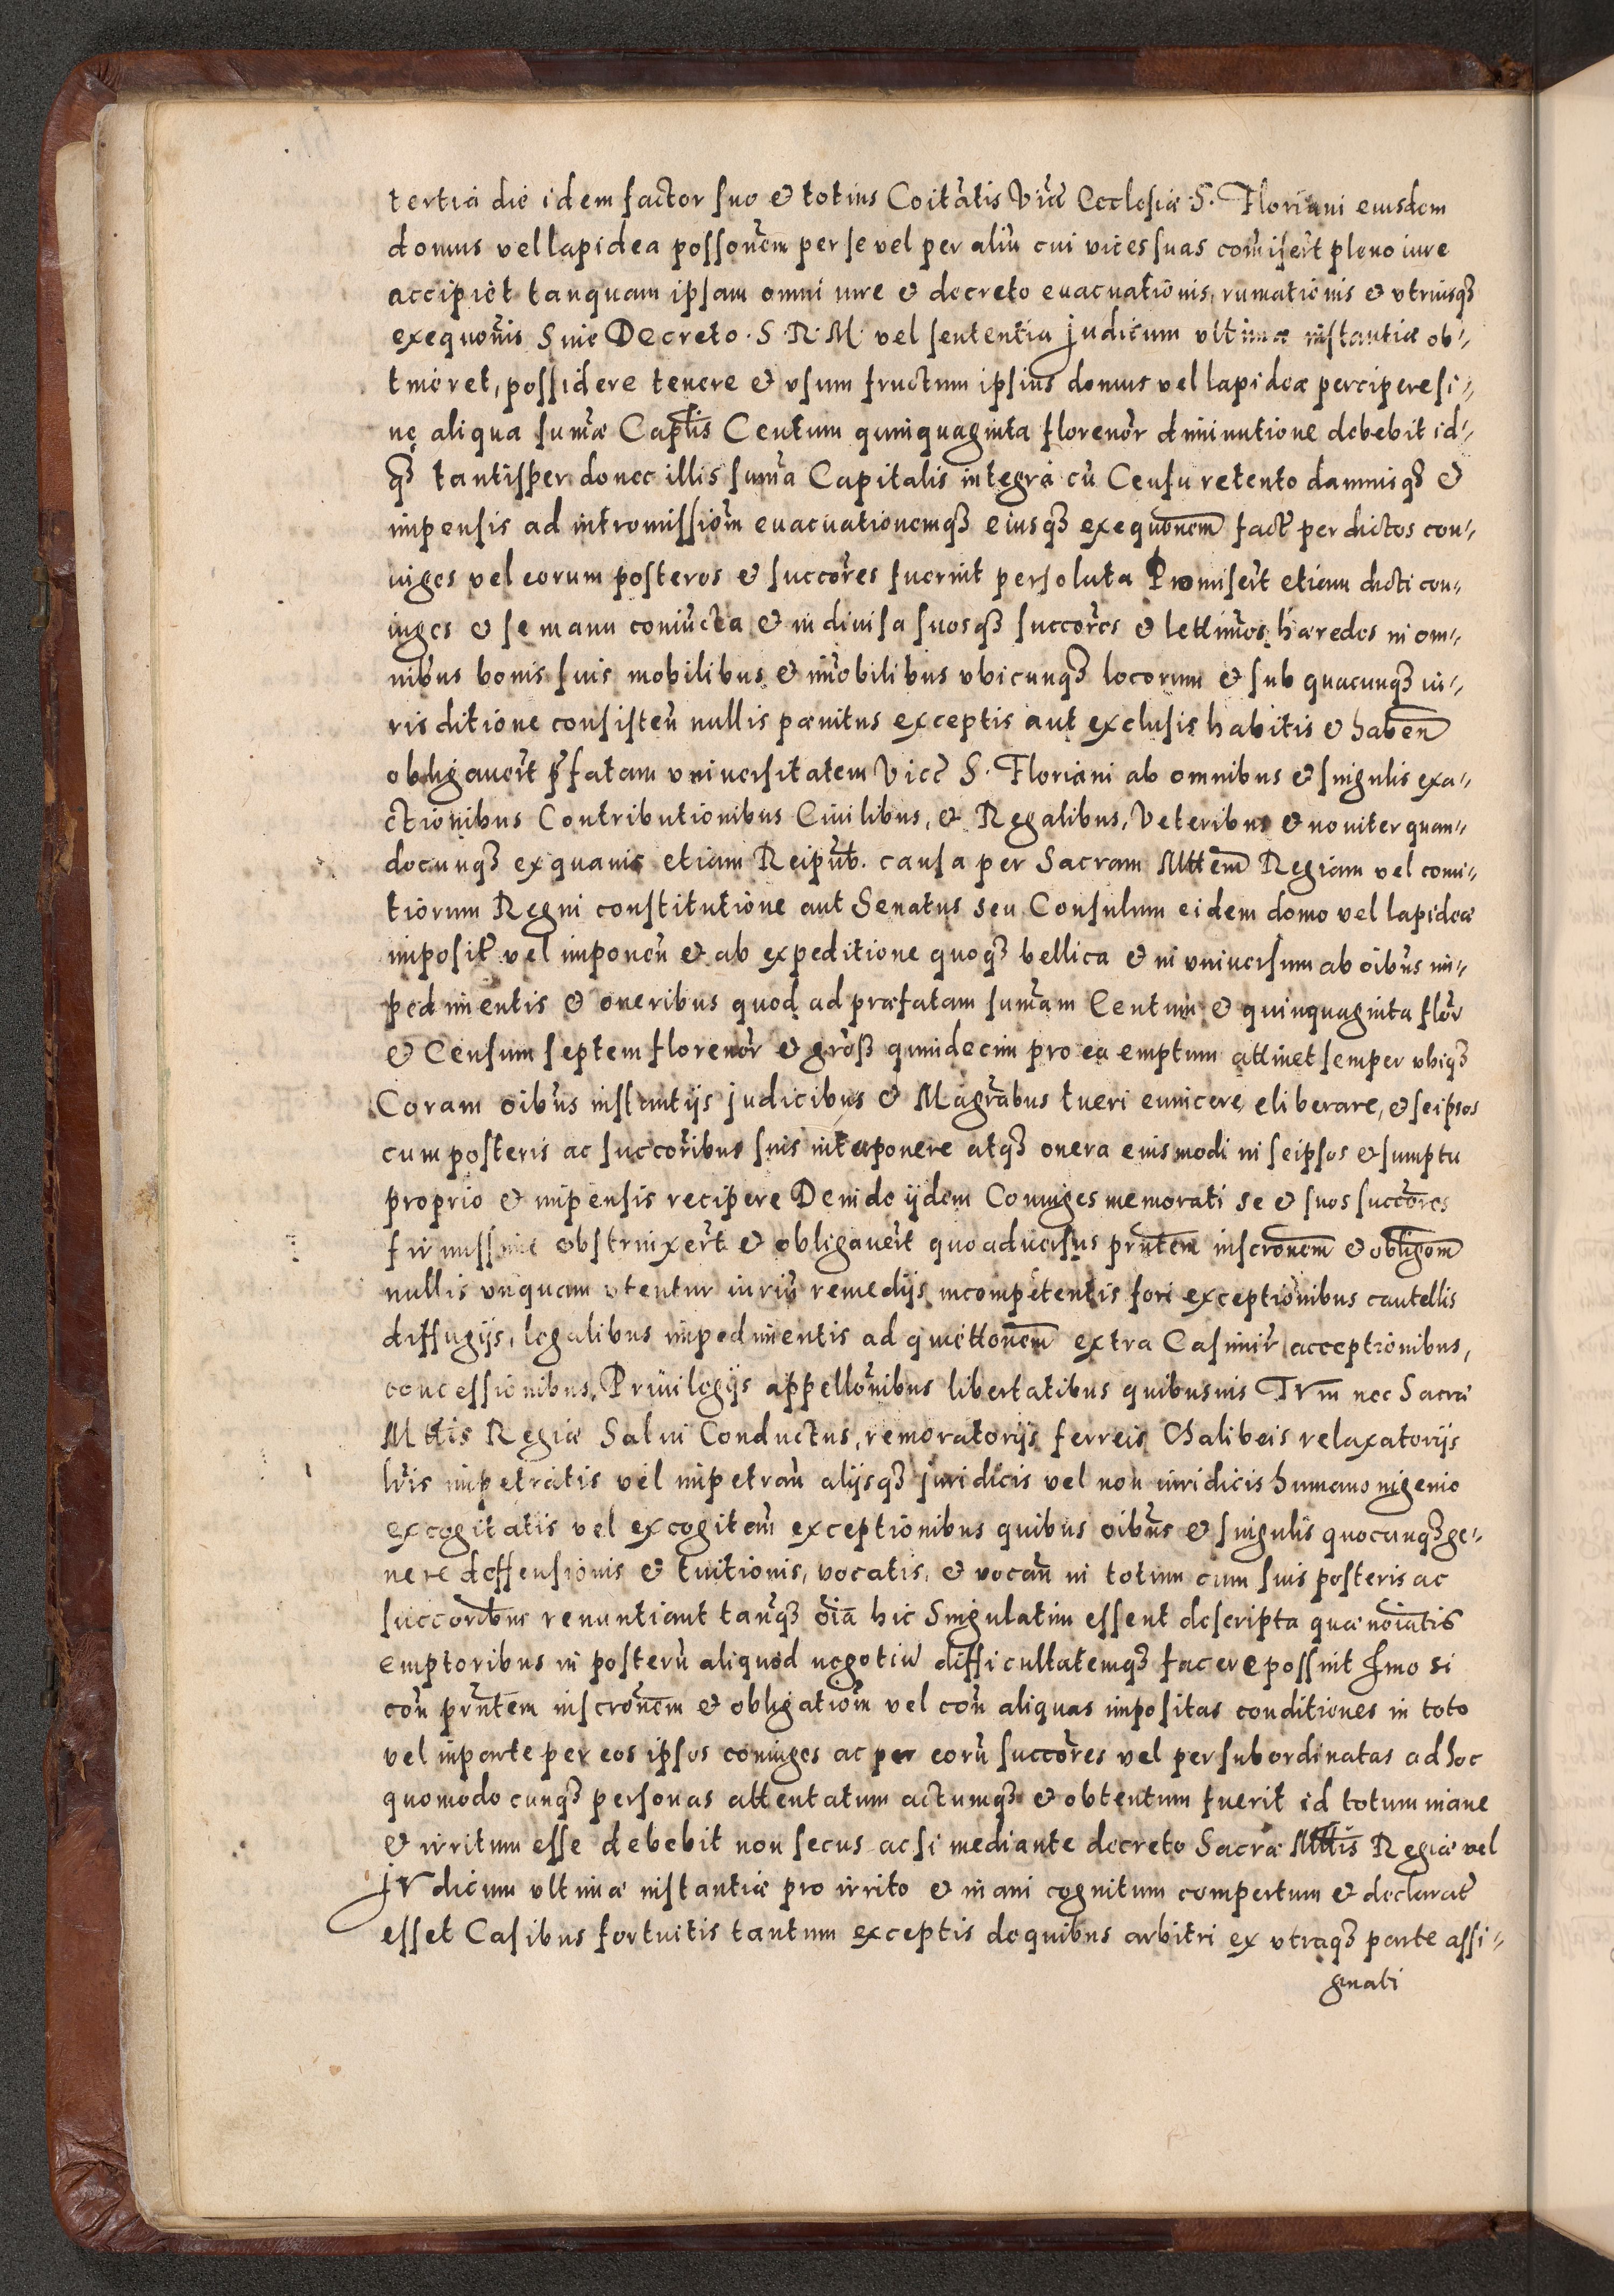 tertia die idem factor suo & totius Coitātis Vicē Ecclesiæ S. Floriani eiusdem
domus vel lapideæ possonem̄ per se vel per aliū cui vices suas com̄iserīt pleno iure
accipiet tanquam ipsam omni iure & decreto euacuationis, rumationis & vtriusqȝ
exequonis̄ Siue Decreto. S. R. M. vel sententia judicum vltimæ instantiæ ob-
tineret, possidere tenere & vsum fructum ipsius domus vel lapideæ percipere si-
ne aliqua sum̄æ Captlis̄ Centum quinquaginta florenor̄ diminutione debebit id-
qȝ tantisper donec illis sum̄a Capitalis integra cū Censu retento damnisqȝ &
impensis ad intromissiom̄ euacuationemqȝ eiusqȝ exequonem̄ fact̄ per dictos con-
iuges vel eorum posteros & succores̄ fuerint persoluta Promiserīt etiam dicti con-
iuges & se manu coniūcta & indiuisa suosqȝ succores̄ & lettimos̄ hæredes in om-
nibus bonis suis mobilibus & im̄obilibus vbicunqȝ locorum & sub quacunqȝ iu-
risditione consisten̄ nullis pænitus exceptis aut exclusis habitis & haben̄
obligauerīt p̄fatam vniuersitatem Vicē S. Floriani ab omnibus & singulis exa-
ctionibus Contributionibus Ciuilibus, & Regalibus, Veteribus & nouiter quan-
docunqȝ ex quauis etiam Reipub̄. causa per Sacram Mttem̄ Regiam vel comi-
tiorum Regni constitutione aut Senatus seu Consulum eidem domo vel lapideæ
imposit̄ vel imponen̄ & ab expeditione quoqȝ bellica & in vniuersum ab oibus̄ im-
pedimentis & oneribus quod ad præfatam sum̄am Centum & quinquaginta flor̄
& Censum septem florenor̄ & gross̄ quindecim pro ea emptum attinet semper vbiqȝ
Coram oibus̄ instantijs judicibus & Magrabus̄ tueri euincere, eliberare, & seipsos
cum posteris ac succoribus̄ suis interponere atqȝ onera eiusmodi in seipsos & sumptu
proprio & impensis recipere Deinde ijdem Coniuges memorati se & suos succores̄
firmissime obstrinxerīt & obligauerīt quo aduersus prntem̄ inscronem̄ & obligom̄
nullis vnquam vtentur iuriū remedijs incompetentis fori exceptionibus cautellis
diffugijs, legalibus impedimentis ad quiettonem̄ extra Casimir̄ acceptionibus,
concessionibus, Priuilegijs appellonibus̄ libertatibus quibusuis Trm̄ nec Sacræ
Mttis Regiæ Salui Conductus, remoratorijs ferreis Chalibeis relaxatorijs
lrīs impetratis vel impetran̄ alijsqȝ juridicis vel non iuridicis humano ingenio
excogitatis vel excogitan̄ exceptionibus quibus oibus̄ & singulis quocunqȝ ge-
nere deffensionis & tuitionis, vocatis, & vocan̄ in totum cum suis posteris ac
succoribus̄ renuntiant tanqȝ oiā hic Singulatim essent descripta quæ noiātis
emptoribus in posterū aliquod negotiū difficultatemqȝ facere possint Imo si
con̄ prntem̄ inscronem̄ & obligatiom̄ vel con̄ aliquas impositas conditiones in toto
vel in parte per eos ipsos coniuges ac per eorū succores̄ vel per subordinatas ad hoc
quomodocunqȝ personas attentatum actumqȝ & obtentum fuerit id totum inane
& irritum esse debebit non secus ac si mediante decreto Sacræ Mttis Regiæ vel
jvdicum vltimæ instantiæ pro irrito & inani cognitum compertum & declarat̄
esset Casibus fortuitis tantum exceptis de quibus arbitri ex vtraqȝ parte assi-
gnati